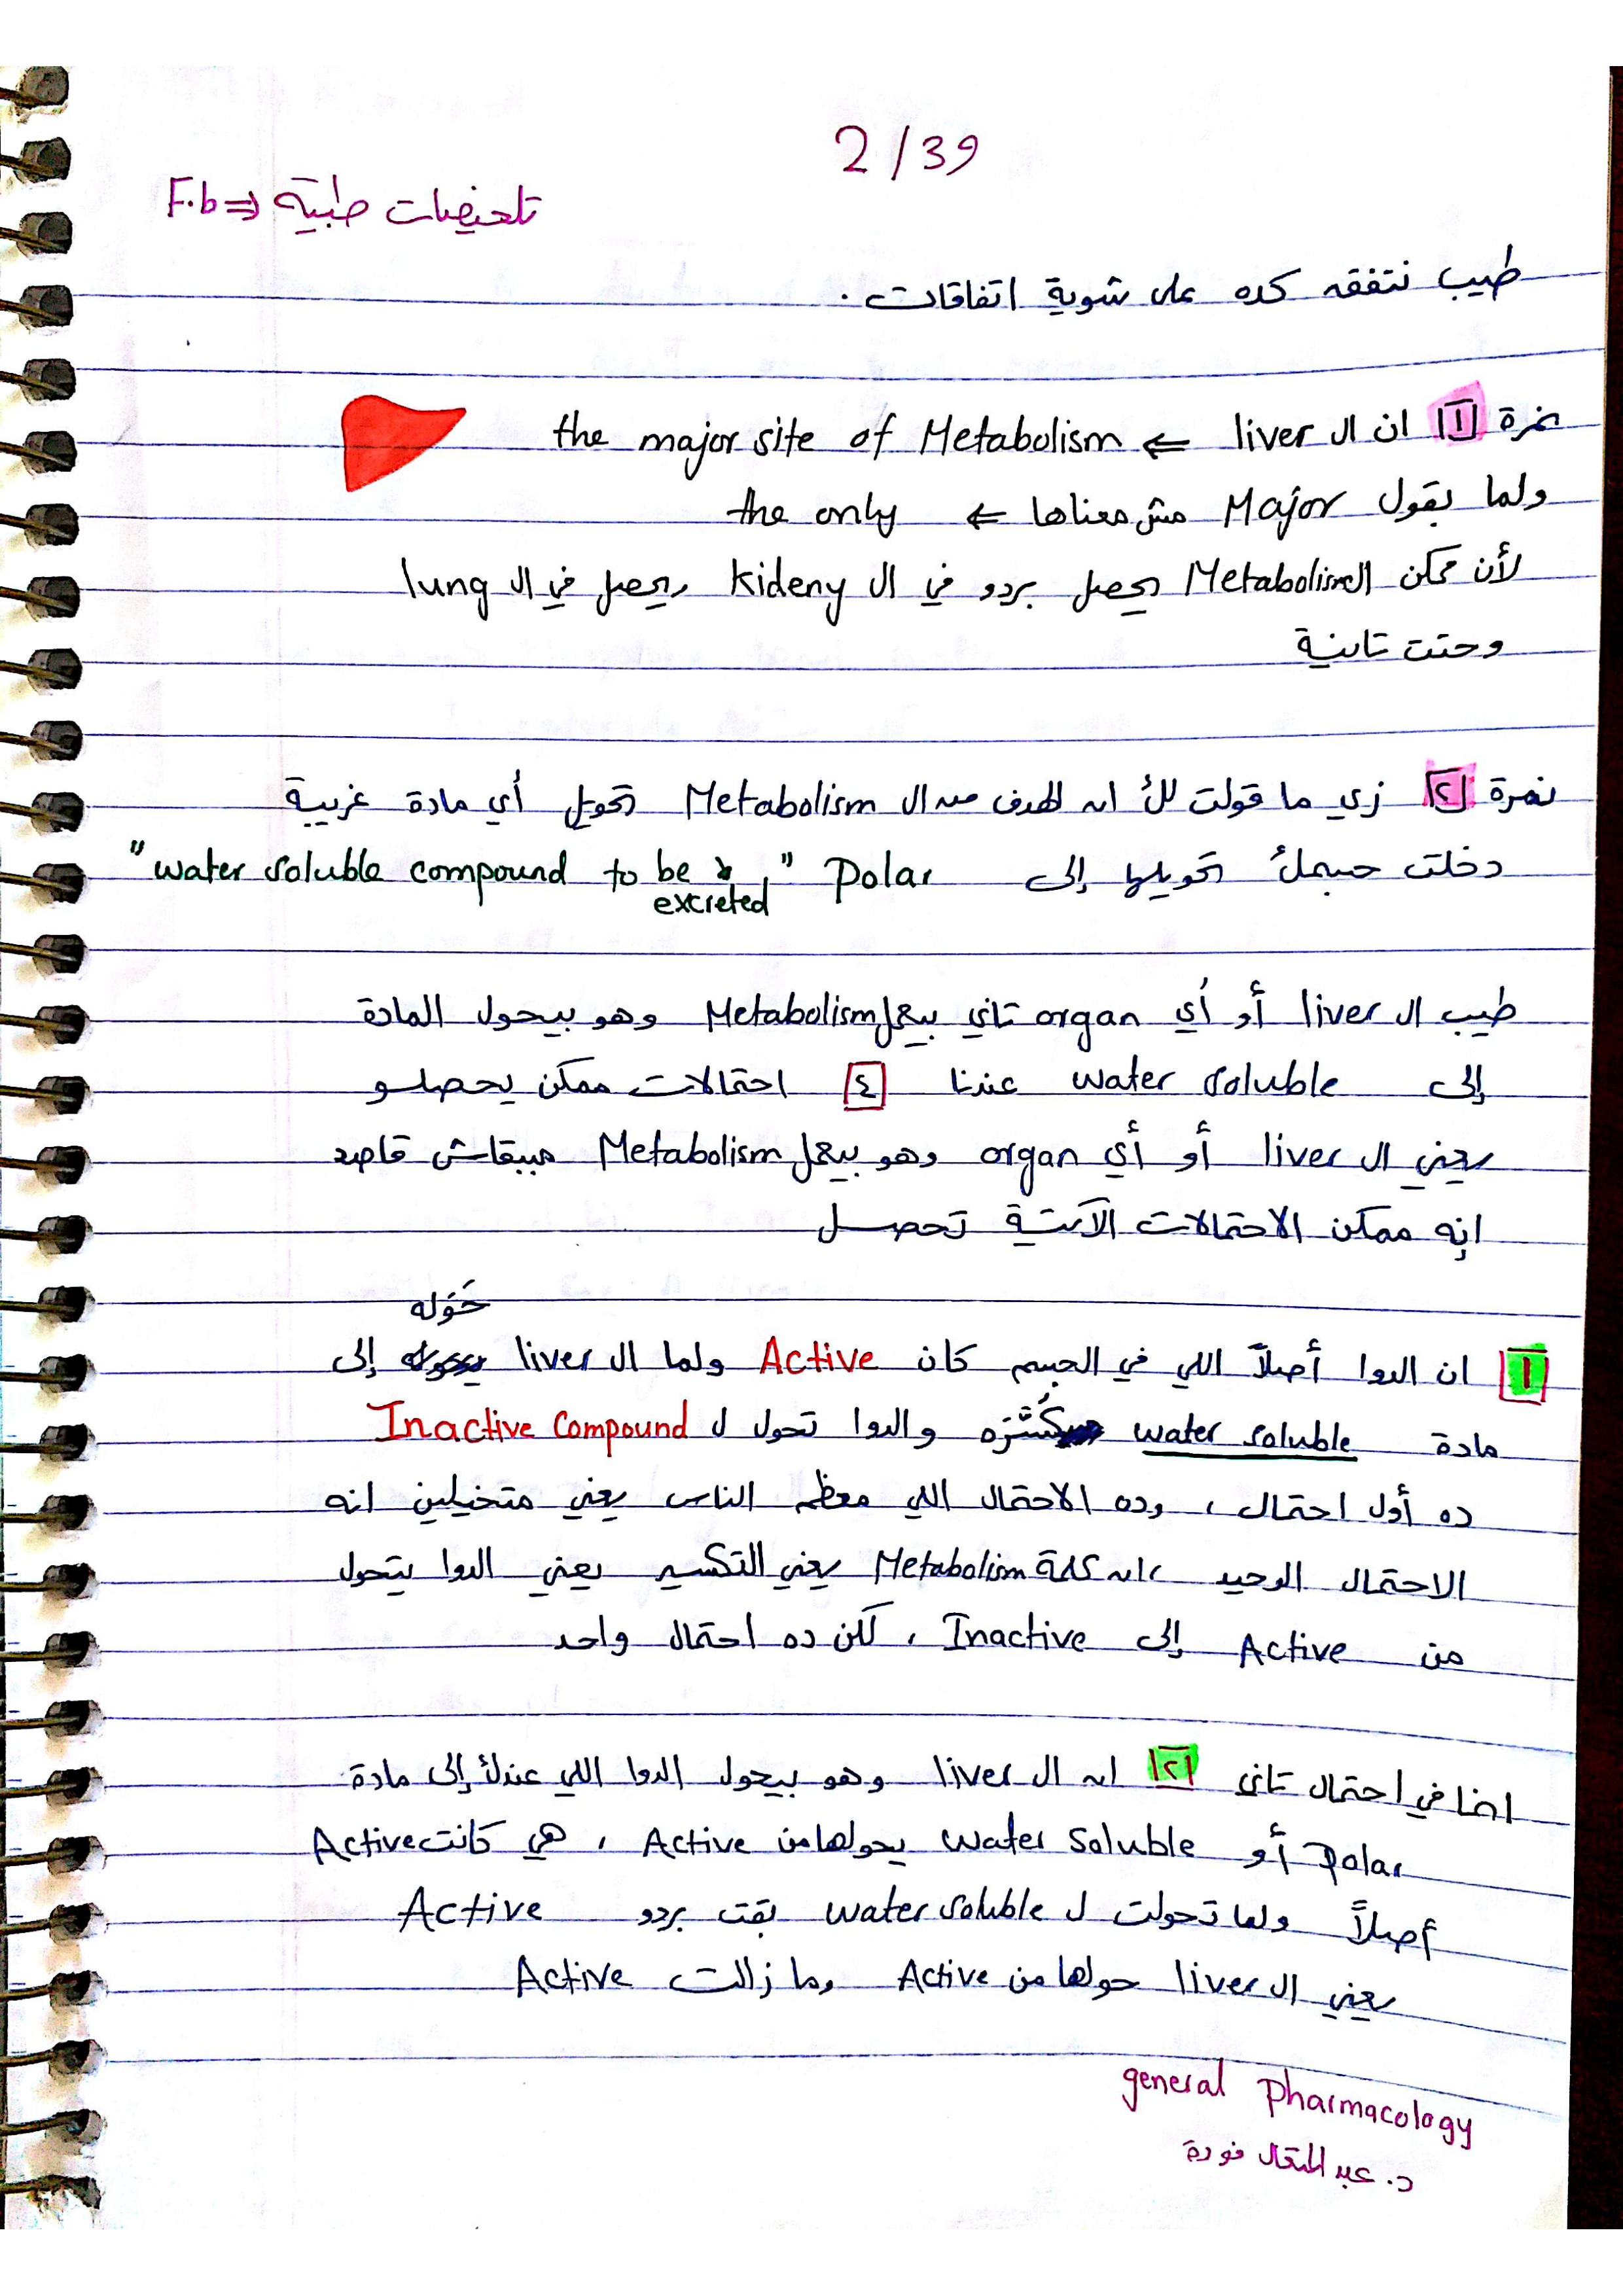 2/39
تلخيصات طبية ⇐ F.b
طيب نتفقه كده على شوية اتفاقات .
نمرة ١ ان ال liver ⇐ the major site of Metabolism
ولما بقول Major مش معناها ⇐ the only
لأن ممكن الـ Metabolism يحصل بردو في ال kideny ويحصل في ال lung
وحتت تانية
نمرة ٢ زي ما قولت لك ان الهدف من ال Metabolism تحويل أي مادة غريبة
دخلت جسمك تحويلها إلى Polar "water soluble compound to be excreted"
طيب ال liver أو أي organ تاني بيعمل Metabolism وهو بيحول المادة
إلى water soluble عندنا ٤ احتمالات ممكن يحصلو
يعني ال liver أو أي organ وهو بيعمل Metabolism مبيبقاش قاصد
انه ممكن الاحتمالات الآتية تحصل
١ ان الدوا أصلاً اللي في الجسم كان Active ولما ال liver حَوّله إلى
مادة water soluble كَسَّره والدوا تحول ل Inactive Compound
ده أول احتمال ، وده الاحتمال اللي معظم الناس يعني متخيلين انه
الاحتمال الوحيد ، ان كلمة Metabolism يعني التكسير يعني الدوا يتحول
من Active إلى Inactive ، لكن ده احتمال واحد
احنا في احتمال تاني ٢ ان ال liver وهو بيحول الدوا اللي عندك إلى مادة
Polar أو water soluble يحولها من Active ، هي كانت Active
أصلاً ولما تحولت ل water soluble بقت بردو Active
يعني ال liver حولها من Active وما زالت Active
general pharmacology
د. عبد المتعال فودة